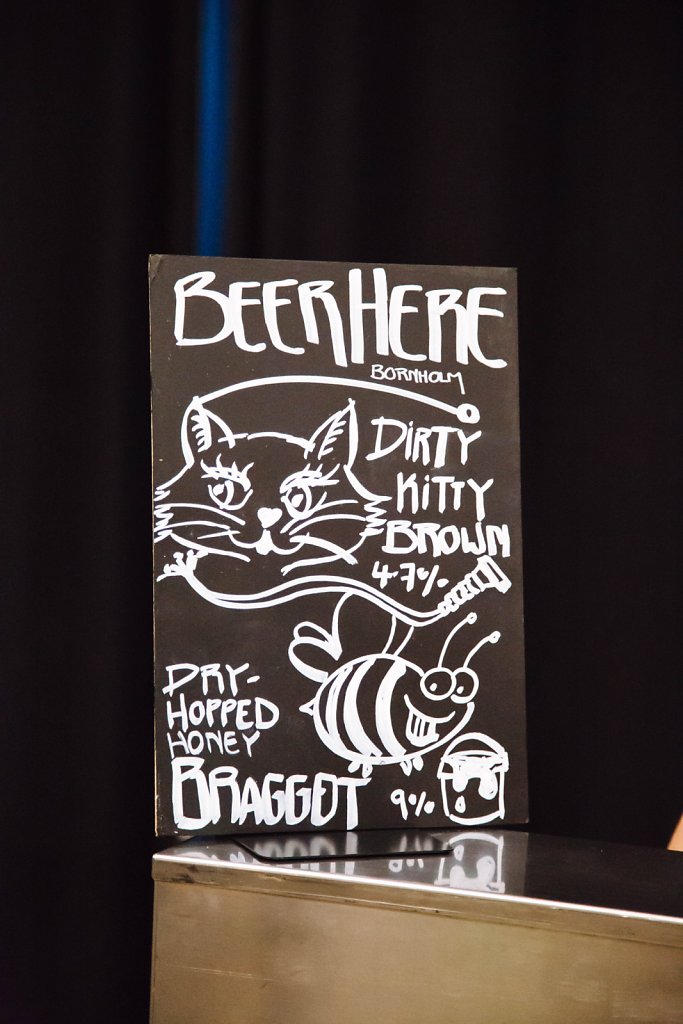 BEERHERE
BORNHOLM
DIRTY
KITTY
BROWN
4.7%
DRY-
HOPPED
HONEY
BRAGGOT 9%